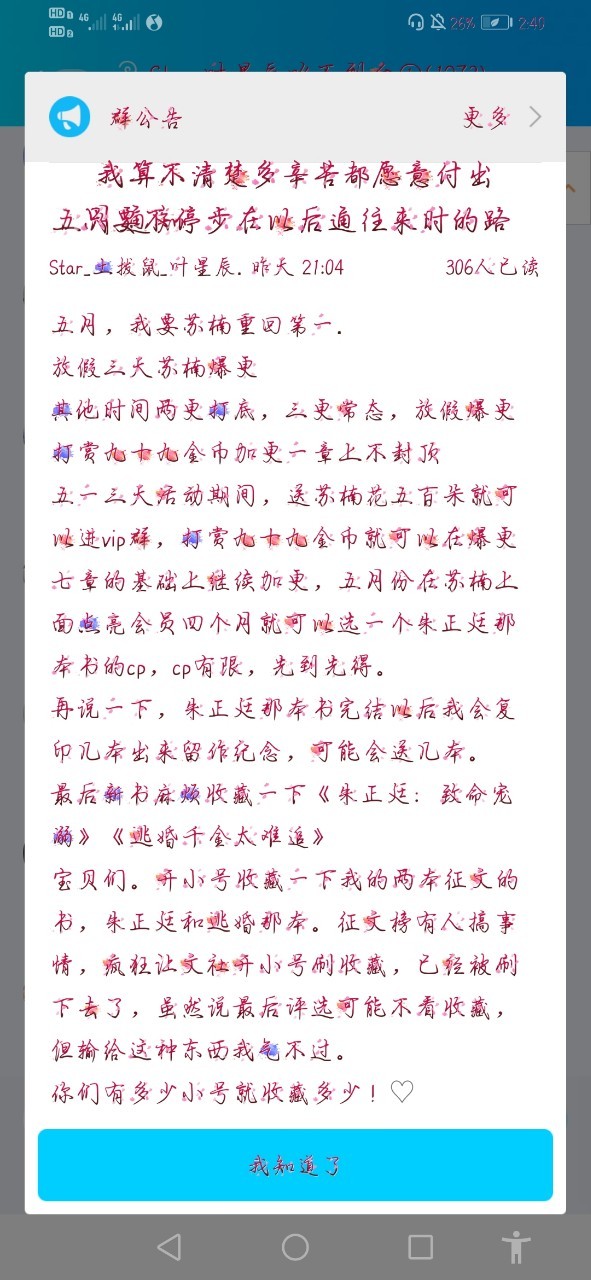 HD 1 4G 4G 26% 2:49
HD 2
群公告 更多
我算不清楚多辛苦都愿意付出
停步在以后通往来时的路
Star_土拨鼠_叶星辰. 昨天 21:04 306人已读
五月，我要苏楠重回第一.
放假三天苏楠爆更
其他时间两更打底，三更常态，放假爆更
打赏九十九金币加更一章上不封顶
五一三天活动期间，送苏楠花五百朵就可
以进vip群，打赏九十九金币就可以在爆更
七章的基础上继续加更，五月份在苏楠上
面点亮会员四个月就可以选一个朱正廷那
本书的cp，cp有限，先到先得。
再说一下，朱正廷那本书完结以后我会复
印几本出来留作纪念，可能会送几本。
最后新书麻烦收藏一下《朱正廷：致命宠
溺》《逃婚千金太难追》
宝贝们。开小号收藏一下我的两本征文的
书，朱正廷和逃婚那本。征文榜有人搞事
情，疯狂让文社开小号刷收藏，已经被刷
下去了，虽然说最后评选可能不看收藏，
但输给这种东西我气不过。
你们有多少小号就收藏多少！♡
我知道了